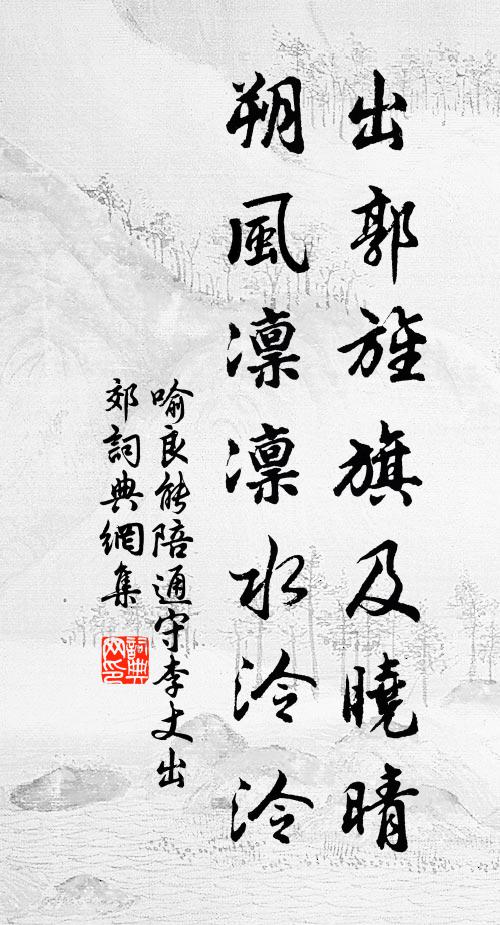 出郭旌旗及曉晴
朔風凛凛水泠泠
喻良能陪通守李丈出
郊詞典網集
詞典